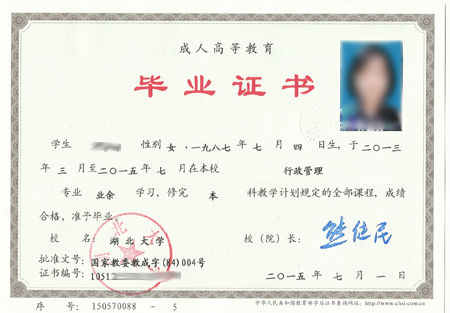 成人高等教育
毕业证书
学生 性别 女 ，一九八七年 七 月 四 日生，于二〇一三
年 三 月至二〇一五年 七 月在本校 行政管理
专业 业余 学习，修完 本 科教学计划规定的全部课程，成绩
合格，准予毕业。
校 名： 湖北大学 校（院）长：
批准文号：国家教委教成字(84)004号
证书编号：1051
二〇一五年 七 月 一 日
中华人民共和国教育部学历证书查询网址：http://www.chsi.com.cn
序 号：150570088 - 5